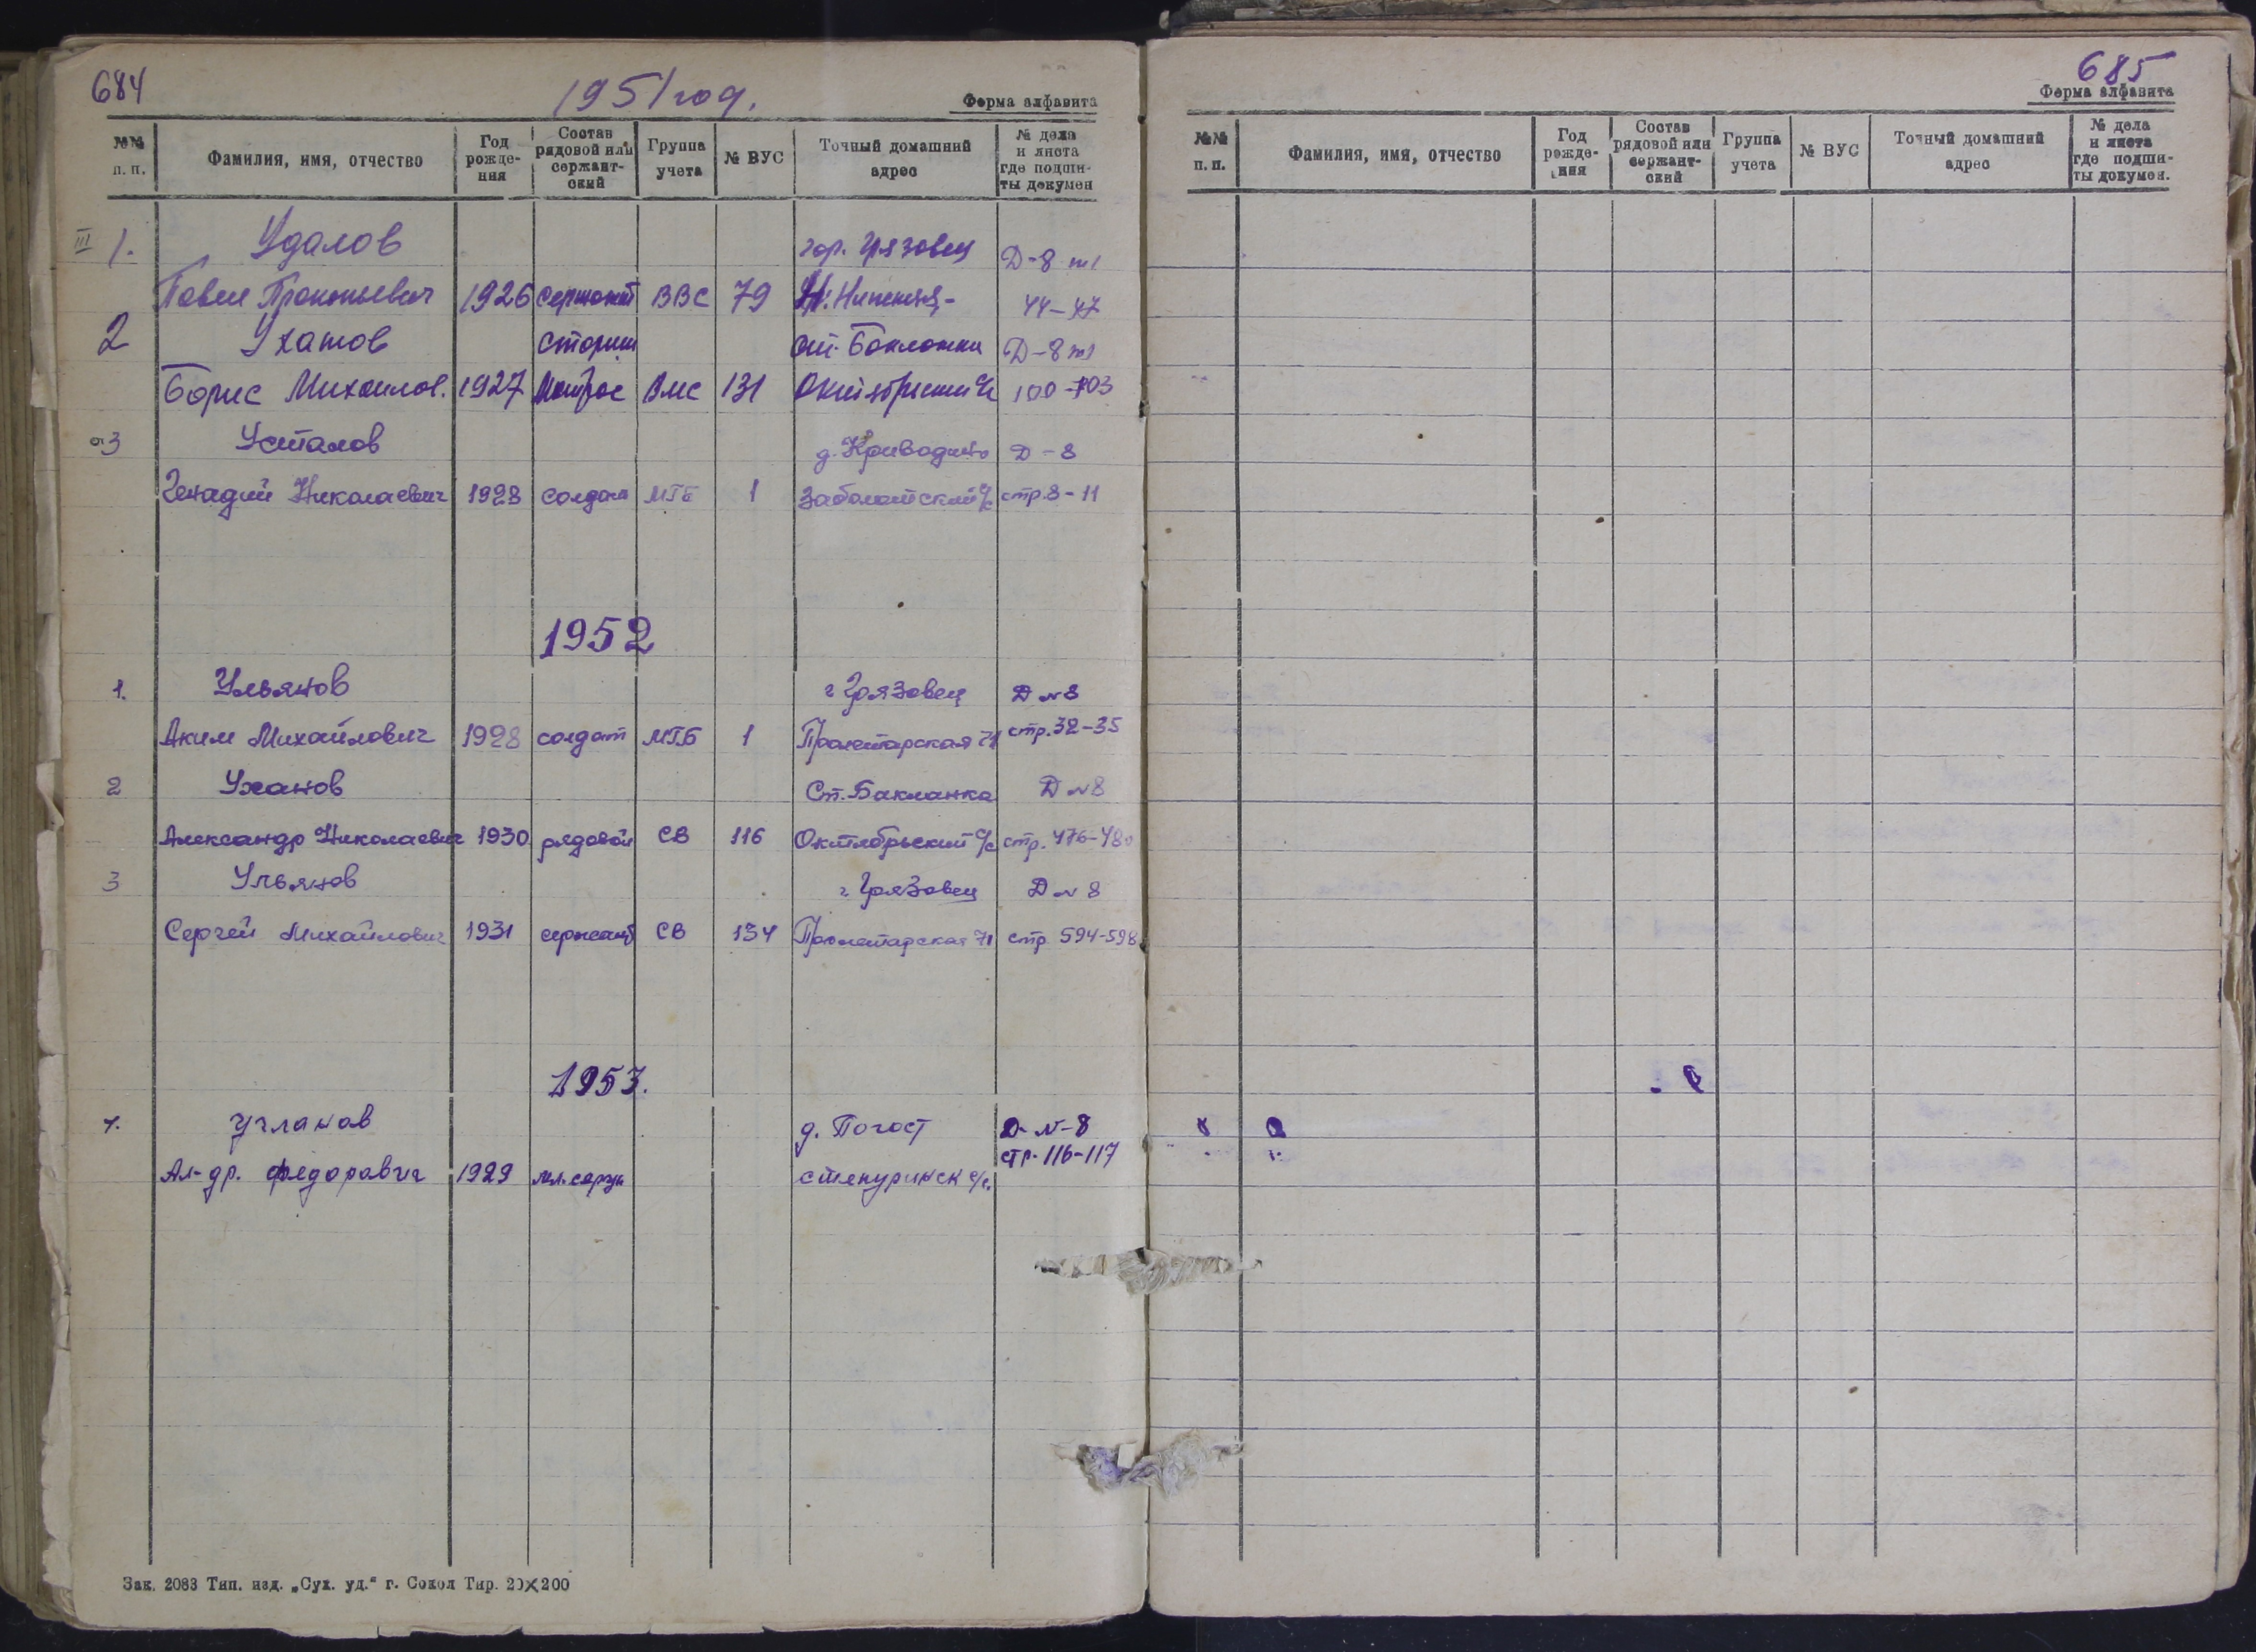 684
1951 год.
Форма алфавита
№№ п. п.
Фамилия, имя, отчество
Год рожде-ния
Состав рядовой или сержант-ский
Группа учета
№ ВУС
Точный домашний адрес
№ дела и листа где подши-ты докумен
III 1. Удалов гор. Грязовец Д-8 т1
Павел Прокопьевич 1926 сержант ВВС 79 44-47
2 Уханов старш ст. Бакланка Д-8 т1
Борис Михайлов. 1927 матрос ВМС 131 Октябрьский с/с 100-103
3 Усталов д. Криводино Д-8
Генадий Николаевич 1928 солдат МГБ 1 Заболотский с/с стр. 8-11
1952
1. Ульянов г Грязовец Д №8
Аким Михайлович 1928 солдат МГБ 1 Пролетарская 71 стр. 32-35
2 Уханов Ст. Бакланка Д №8
Александр Николаевич 1930 рядовой СВ 116 Октябрьский с/с стр. 476-480
3 Ульянов г Грязовец Д №8
Сергей Михайлович 1931 сержант СВ 134 Пролетарская 71 стр. 594-598
1953.
1. Угланов д. Погост Д-№-8
стр. 116-117
Ал-др. Федоравич 1929 мл. серж с/с.
Зак. 2083 Тип. изд. „Сух. уд.“ г. Сокол Тир. 20×200
685
Форма алфавита
№№ п. п.
Фамилия, имя, отчество
Год рожде-ния
Состав рядовой или сержант-ский
Группа учета
№ ВУС
Точный домашний адрес
№ дела и листа где подши-ты докумен.